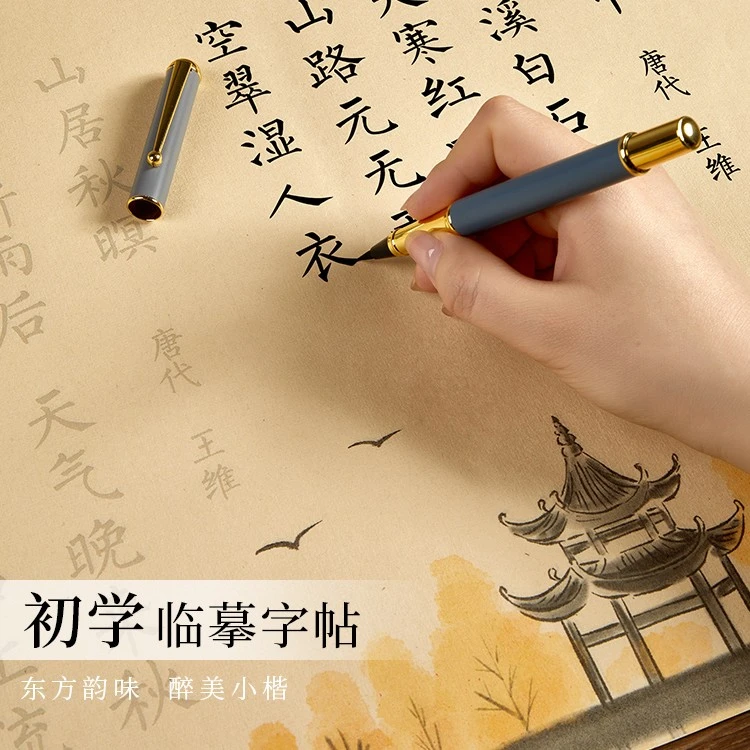 唐代
王维
溪白石
寒红
山路元无
空翠湿人衣
山居秋暝
唐代
王维
雨后 天气晚
秋
流
初学临摹字帖
东方韵味 醉美小楷